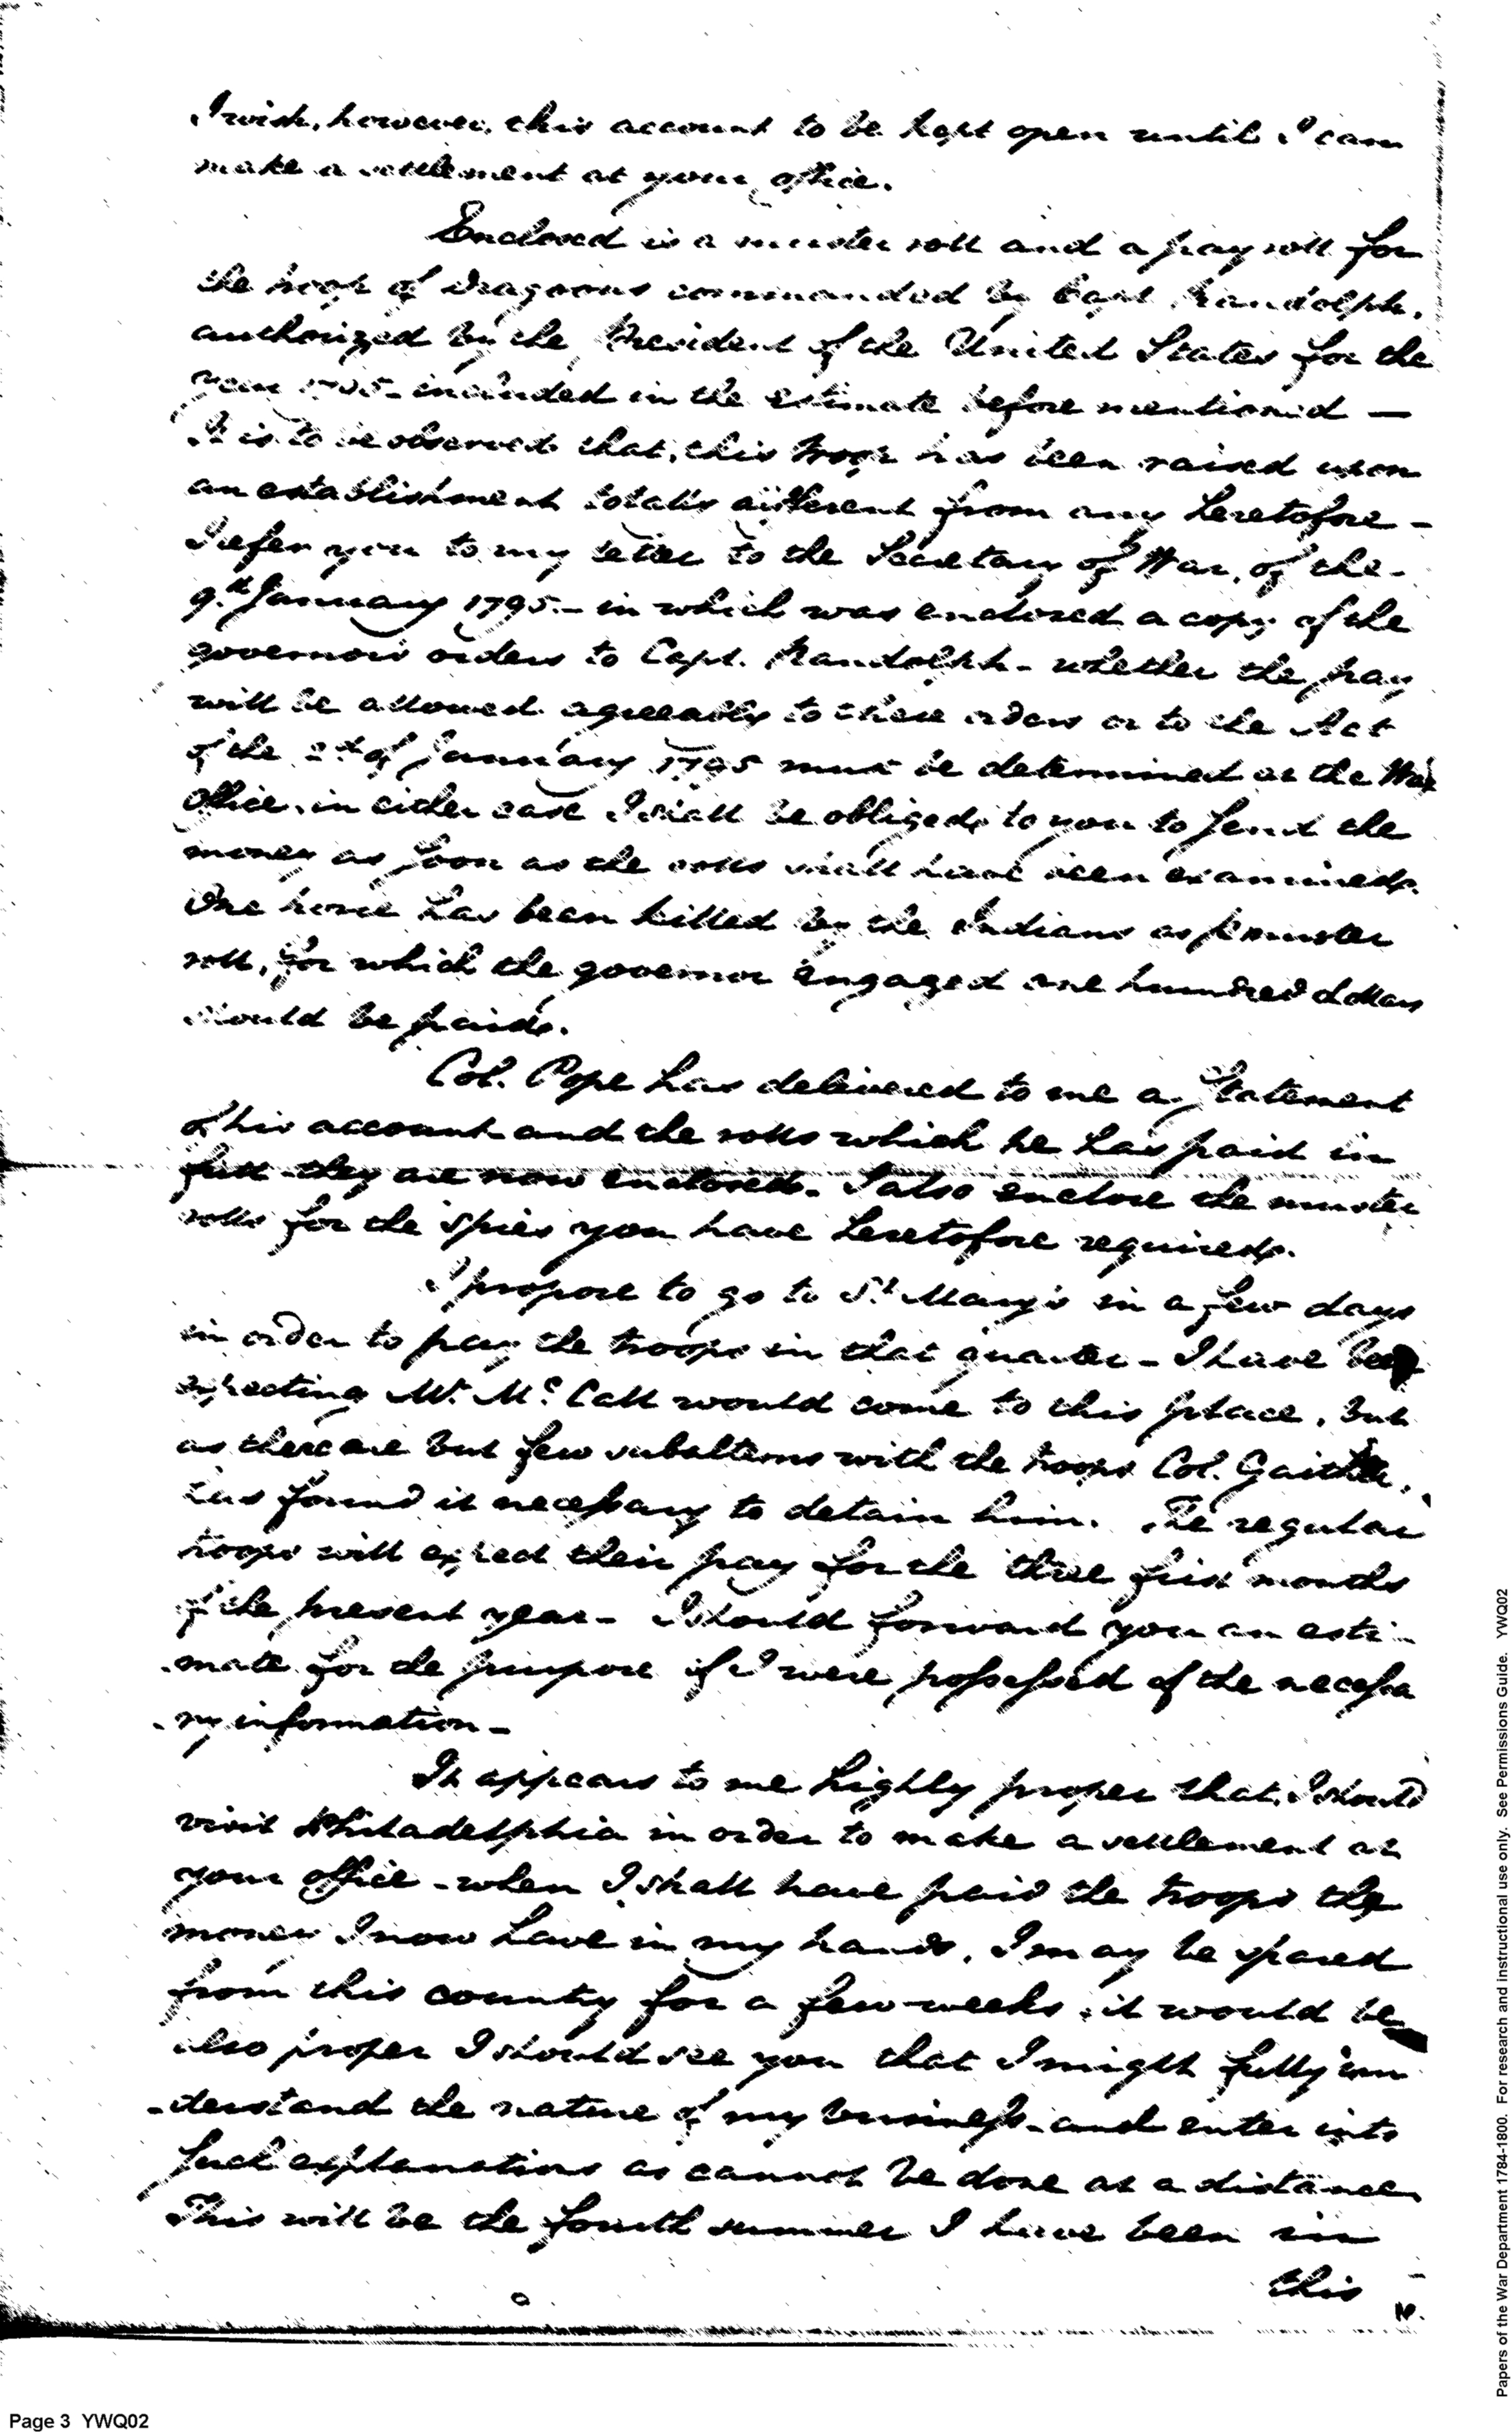 I wish, however, this account to be kept open until I can
make a settlement at your office.
Enclosed is a muster roll and a pay roll for
the troop of dragoons commanded by Capt. Randolph,
authorized by the President of the United States for the
year 1795 - included in the estimate before mentioned —
It is to be observed that, this troop has been raised upon
an establishment totally different from any heretofore -
I refer you to my letter to the Secretary of War, of the -
9.th January 1795. - in which was enclosed a copy of the
governors orders to Capt. Randolph - whether the pay
will be allowed agreeably to these orders or to the Act
of the 2d of January 1795 must be determined at the War
Office, in either case I shall be obliged to you to send the
money as soon as the rolls shall have been examined.
One horse has been killed by the Indians as p muster
roll, for which the governor engaged one hundred dollars
should be paid.
Col. Pope has delivered to me a Statement
of his account and the rolls which he has paid in
full - they are now enclosed. I also enclose the muster
rolls for the spies you have heretofore required.
I propose to go to St Mary's in a few days
in order to pay the troops in that quarter - I have been
expecting Mr. Mc. Call would come to this place, but
as there are but few subalterns with the troops Col. Gaither,
has found it necessary to detain him. The regular
troops will expect their pay for the three first months
of the present year - I should forward you an esti-
-mate for the purpose if I were possessed of the necessa
-ry information -
It appears to me highly proper that, I should
visit Philadelphia in order to make a settlement at
your office - when I shall have paid the troops the
money I now have in my hands, I may be spared
from this country for a few weeks, it would be
also proper I should see you that I might fully un
-derstand the nature of my business - and enter into
such explanations as cannot be done at a distance,
This will be the fourth summer I have been in
this
Page 3 YWQ02
Papers of the War Department 1784-1800. For research and instructional use only. See Permissions Guide. YWQ02